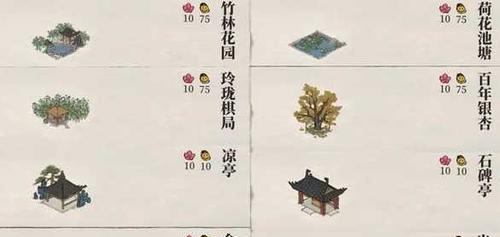 竹林花园
10 75
荷花池塘
10 75
玲珑棋局
10 75
百年银杏
10 75
凉亭
10 10
石碑亭
10 10